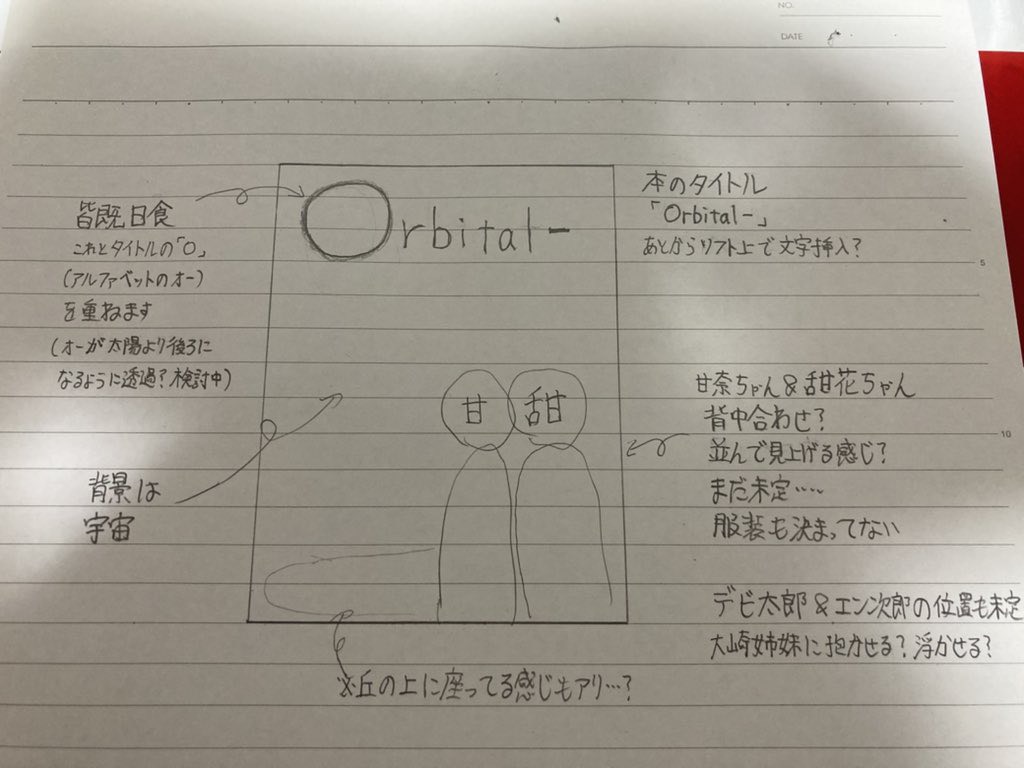 NO.
DATE
皆既日食
これとタイトルの「O」
(アルファベットのオー)
を重ねます
(オーが太陽より後ろに
なるように透過?検討中)
Orbital-
本のタイトル
「Orbital-」
あとからソフト上で文字挿入?
5
甘
甜
甘奈ちゃん&甜花ちゃん
背中合わせ?
並んで見上げる感じ?
まだ未定……
服装も決まってない
10
背景は
宇宙
デビ太郎&エン次郎の位置も未定
大崎姉妹に抱かせる?浮かせる?
※丘の上に座ってる感じもアリ…?